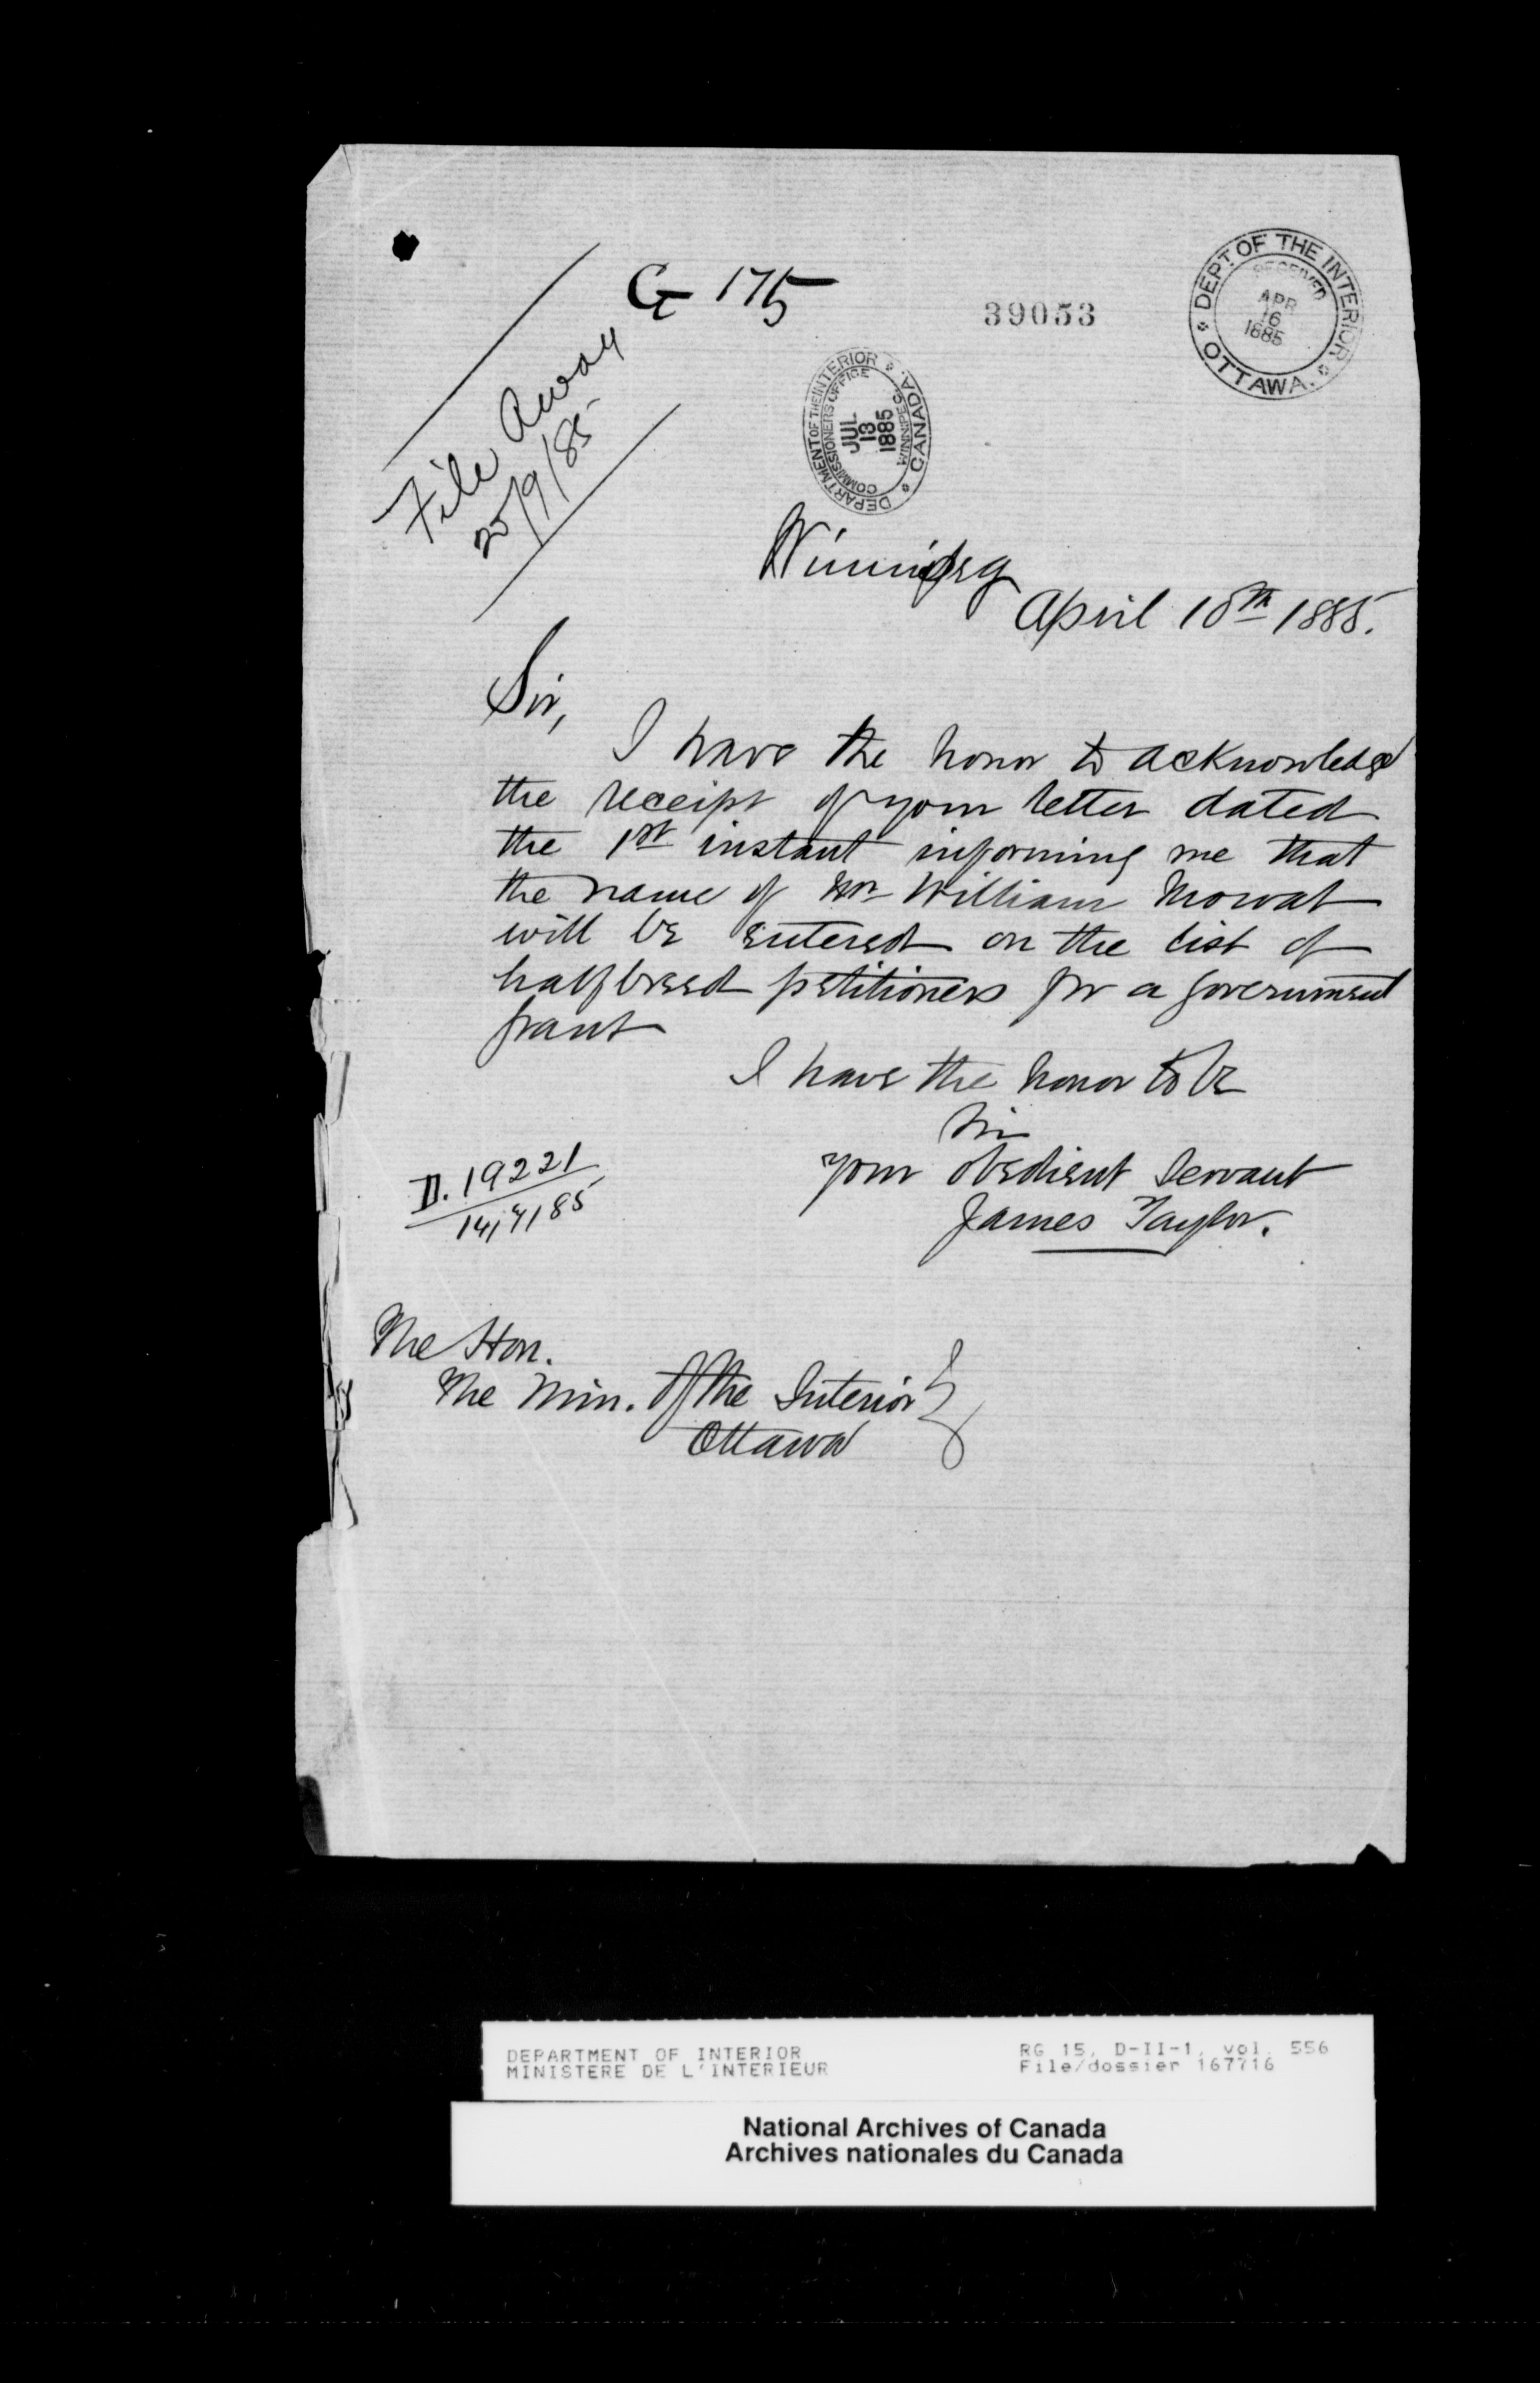 G 175
39053
DEPT. OF THE INTERIOR
RECEIVED
APR
16
1885
OTTAWA.
File Away
25/9/85
DEPARTMENT OF THE INTERIOR
COMMISSIONERS OFFICE
JUL
13
1885
WINNIPEG,
CANADA.
Winnipeg
April 10th 1885.
Sir,
I have the honor to acknowledge
the receipt of your letter dated
the 1st instant informing me that
the name of Mr William Mowat
will be entered on the list of
halfbreed petitioners for a government
grant
I have the honor to be
Sir
your obedient servant
James Taylor.
D. 19221
14/7/85
The Hon.
The Min. of the Interior
Ottawa
DEPARTMENT OF INTERIOR
MINISTERE DE L'INTERIEUR
RG 15, D-II-1, vol. 556
File/dossier 167716
National Archives of Canada
Archives nationales du Canada